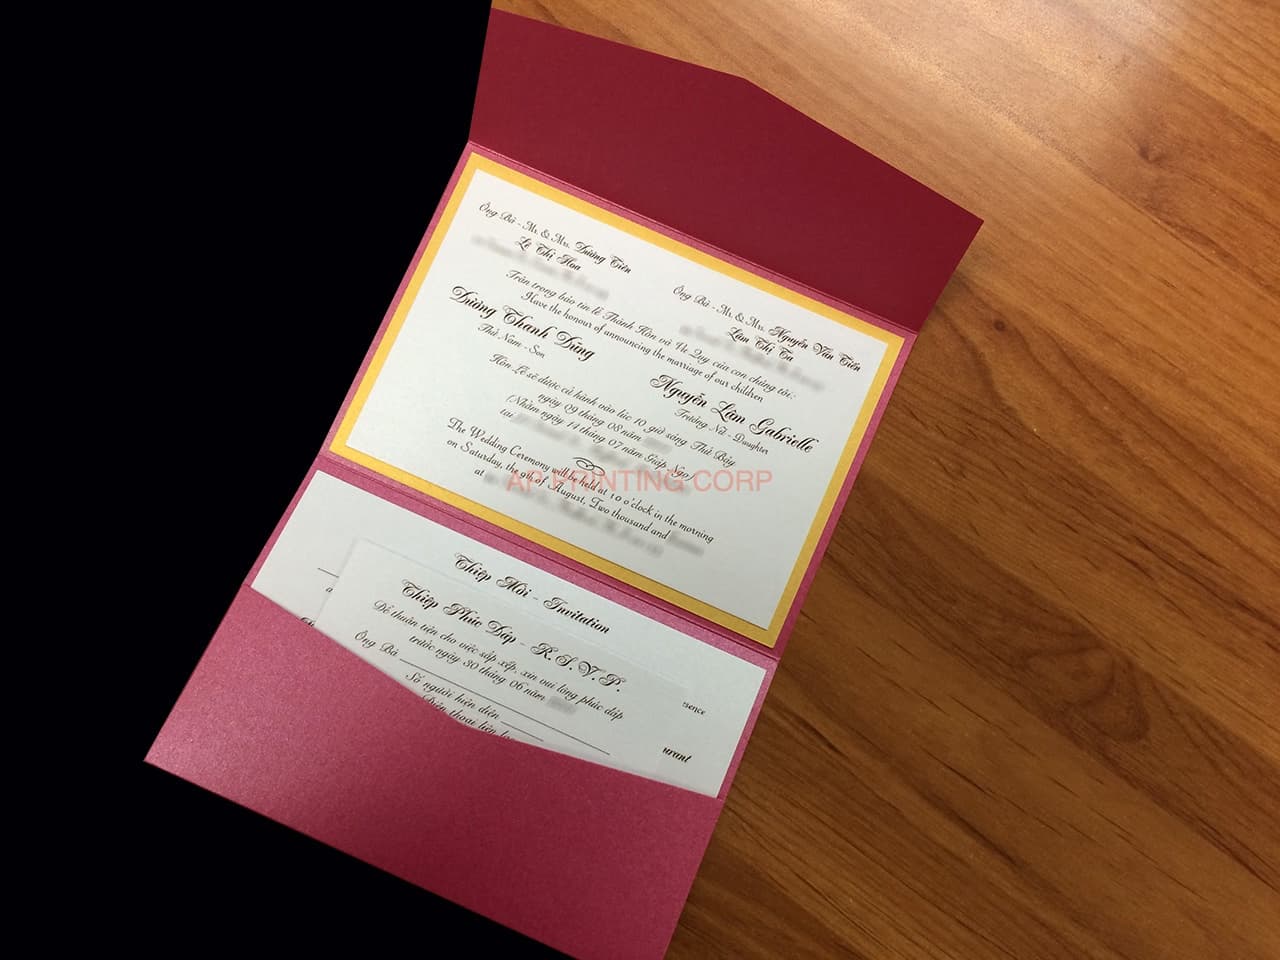 Ông Bà - Mr. & Mrs. Dương Tiên
Lê Thị Hoa
Ông Bà - Mr. & Mrs. Nguyễn Văn Tiến
Lâm Thị Ta
Trân trọng báo tin lễ Thành Hôn và Vu Quy của con chúng tôi:
Have the honour of announcing the marriage of our children
Dương Thanh Dũng
Thứ Nam - Son
Nguyễn Lâm Gabrielle
Trưởng Nữ - Daughter
Hôn Lễ sẽ được cử hành vào lúc 10 giờ sáng Thứ Bảy
ngày 09 tháng 08 năm
(Nhằm ngày 14 tháng 07 năm Giáp Ngọ)
tại
The Wedding Ceremony will be held at 10 o'clock in the morning
on Saturday, the 9th of August, Two thousand and
at
AP PRINTING CORP
Thiệp Mời - Invitation
Thiệp Phúc Đáp - R.S.V.P.
Để thuận tiện cho việc sắp xếp, xin vui lòng phúc đáp
trước ngày 30 tháng 06 năm
Ông Bà
Số người hiện diện
Điện thoại liên
sence
urant